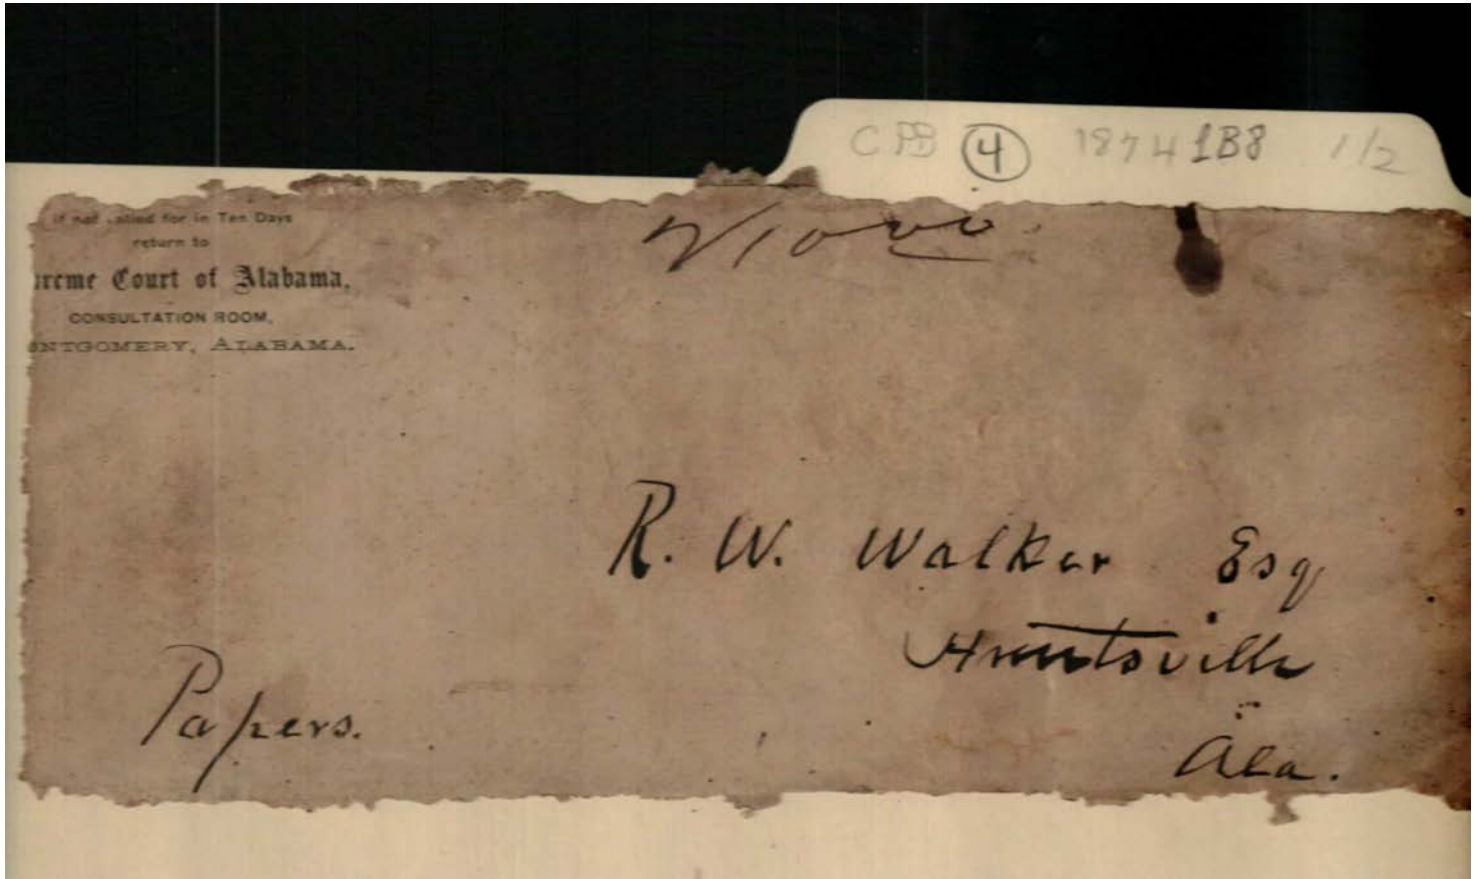 CPB 4 1874 1B8 1/2
If not called for in Ten Days
return to
reme Court of Alabama,
CONSULTATION ROOM,
NTGOMERY, ALABAMA.
R. W. Walker Esq
Huntsville
Papers.
Ala.